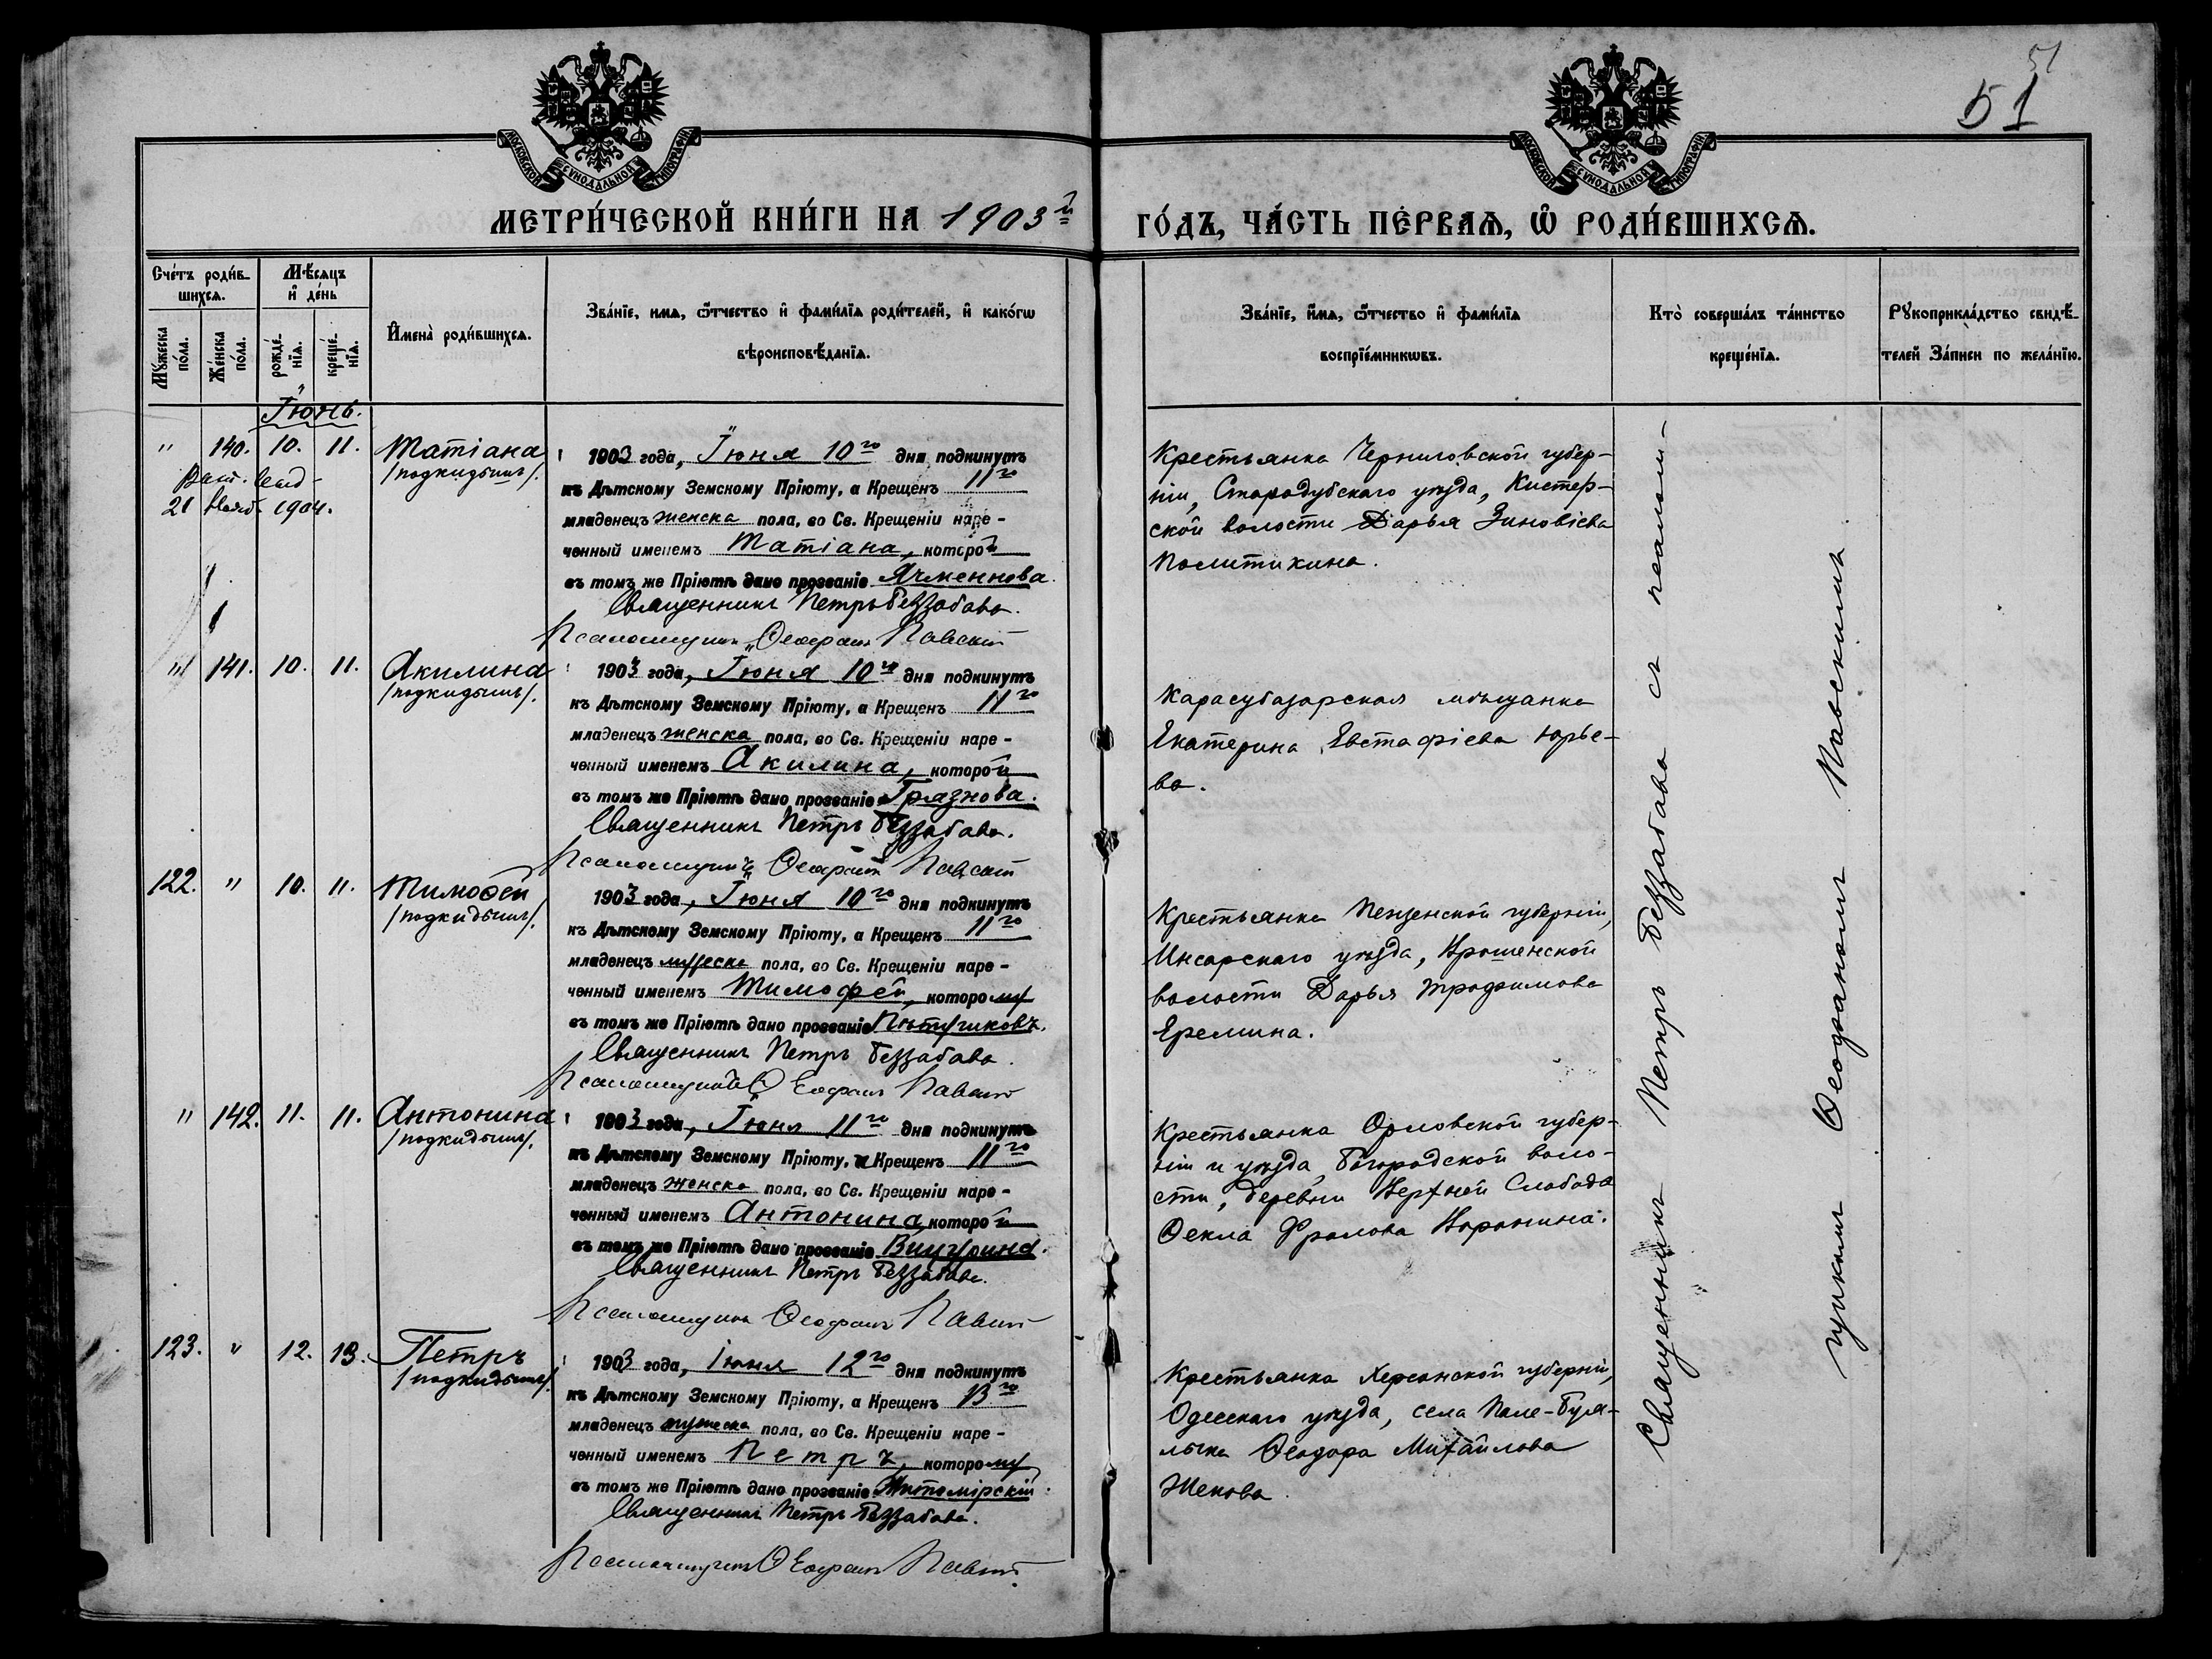 51
51
МОСКОВСКОЙ СѴНОДАЛЬНОЙ ТИПОГРАФІИ
МОСКОВСКОЙ СѴНОДАЛЬНОЙ ТИПОГРАФІИ
МЕТРИ́ЧЕСКОЙ КНИ́ГИ НА 1903й
ГО́ДЪ, ЧА́СТЬ ПЕ́РВАѦ, Ѽ РОДИ́ВШИХСѦ.
Сче́тъ роди́в-
шихсѧ.
Мѣ́сѧцъ
и҆ де́нь
Мꙋ́жеска по́ла.
Же́нска по́ла.
рожде́-
нїѧ.
креще́-
нїѧ.
И҆мена̀ роди́вшихсѧ.
Зва́нїе, имѧ, ѻ҆́тчество и҆ фами́лїѧ роди́телей, и҆ како́гѡ
вѣроисповѣ́данїѧ.
Зва́нїе, и҆́мѧ, ѻ҆́тчество и҆ фами́лїѧ
воспрїе́мникѡвъ.
Кто̀ соверша́лъ та́инство
креще́нїѧ.
Рꙋкоприкла́дство свидѣ́-
телей За́писи по жела́нїю.
Іюнь.
" 140. 10. 11. Татіана
/подкидышъ/.
21 1904.
1903 года, Іюня 10го дня подкинутъ
къ Дѣтскому Земскому Пріюту, а Крещенъ 11го
младенецъ женска пола, во Св. Крещеніи наре-
ченный именемъ Татіана, которой
въ томъ же Пріютѣ дано прозваніе Ячменнова.
Священникъ Петръ Беззабава.
Псаломщикъ Ѳеофанъ Павскій
Крестьянка Черниговской губер-
ніи, Стародубскаго уѣзда, Кистер-
ской волости Дарья Зиновіева
Политикина.
" 141. 10. 11. Акилина
/подкидышъ/.
1903 года, Іюня 10го дня подкинутъ
къ Дѣтскому Земскому Пріюту, а Крещенъ 11го
младенецъ женска пола, во Св. Крещеніи наре-
ченный именемъ Акилина, которой
въ томъ же Пріютѣ дано прозваніе Грязнова.
Священникъ Петръ Беззабава.
Псаломщикъ Ѳеофанъ Павскій
Карасубазарская мѣщанка
Екатерина Евстафіева Юрье-
ва.
122. " 10. 11. Тимоѳей
/подкидышъ/.
1903 года, Іюня 10го дня подкинутъ
къ Дѣтскому Земскому Пріюту, а Крещенъ 11го
младенецъ мужеска пола, во Св. Крещеніи наре-
ченный именемъ Тимофей, которому
въ томъ же Пріютѣ дано прозваніе
Священникъ Петръ Беззабава.
Псаломщикъ Ѳеофанъ Павскій
Крестьянка Пензенской губерніи,
Инсарскаго уѣзда,
волости Дарья Трофимова
Еремина.
" 142. 11. 11. Антонина
/подкидышъ/.
1903 года, Іюня 11го дня подкинутъ
къ Дѣтскому Земскому Пріюту, а Крещенъ 11го
младенецъ женска пола, во Св. Крещеніи наре-
ченный именемъ Антонина, которой
въ томъ же Пріютѣ дано прозваніе
Священникъ Петръ Беззабава.
Псаломщикъ Ѳеофанъ Павскій
Крестьянка Орловской губер-
ніи и уѣзда, Богородской воло-
сти, деревни Верхней Слобода
Ѳекла Фролова Воронина.
123. " 12. 13. Петръ
/подкидышъ/.
1903 года, Іюня 12го дня подкинутъ
къ Дѣтскому Земскому Пріюту, а Крещенъ 13го
младенецъ мужеска пола, во Св. Крещеніи наре-
ченный именемъ Петръ, которому
въ томъ же Пріютѣ дано прозваніе Житомірскій.
Священникъ Петръ Беззабава.
Псаломщикъ Ѳеофанъ Павскій
Крестьянка Херсонской губерніи,
Одесскаго уѣзда, села Пале-Буя-
лыка Ѳеодора Михайлова
Жекова
Священникъ Петръ Беззабава съ псалом-
щикомъ Ѳеофаномъ Павскимъ